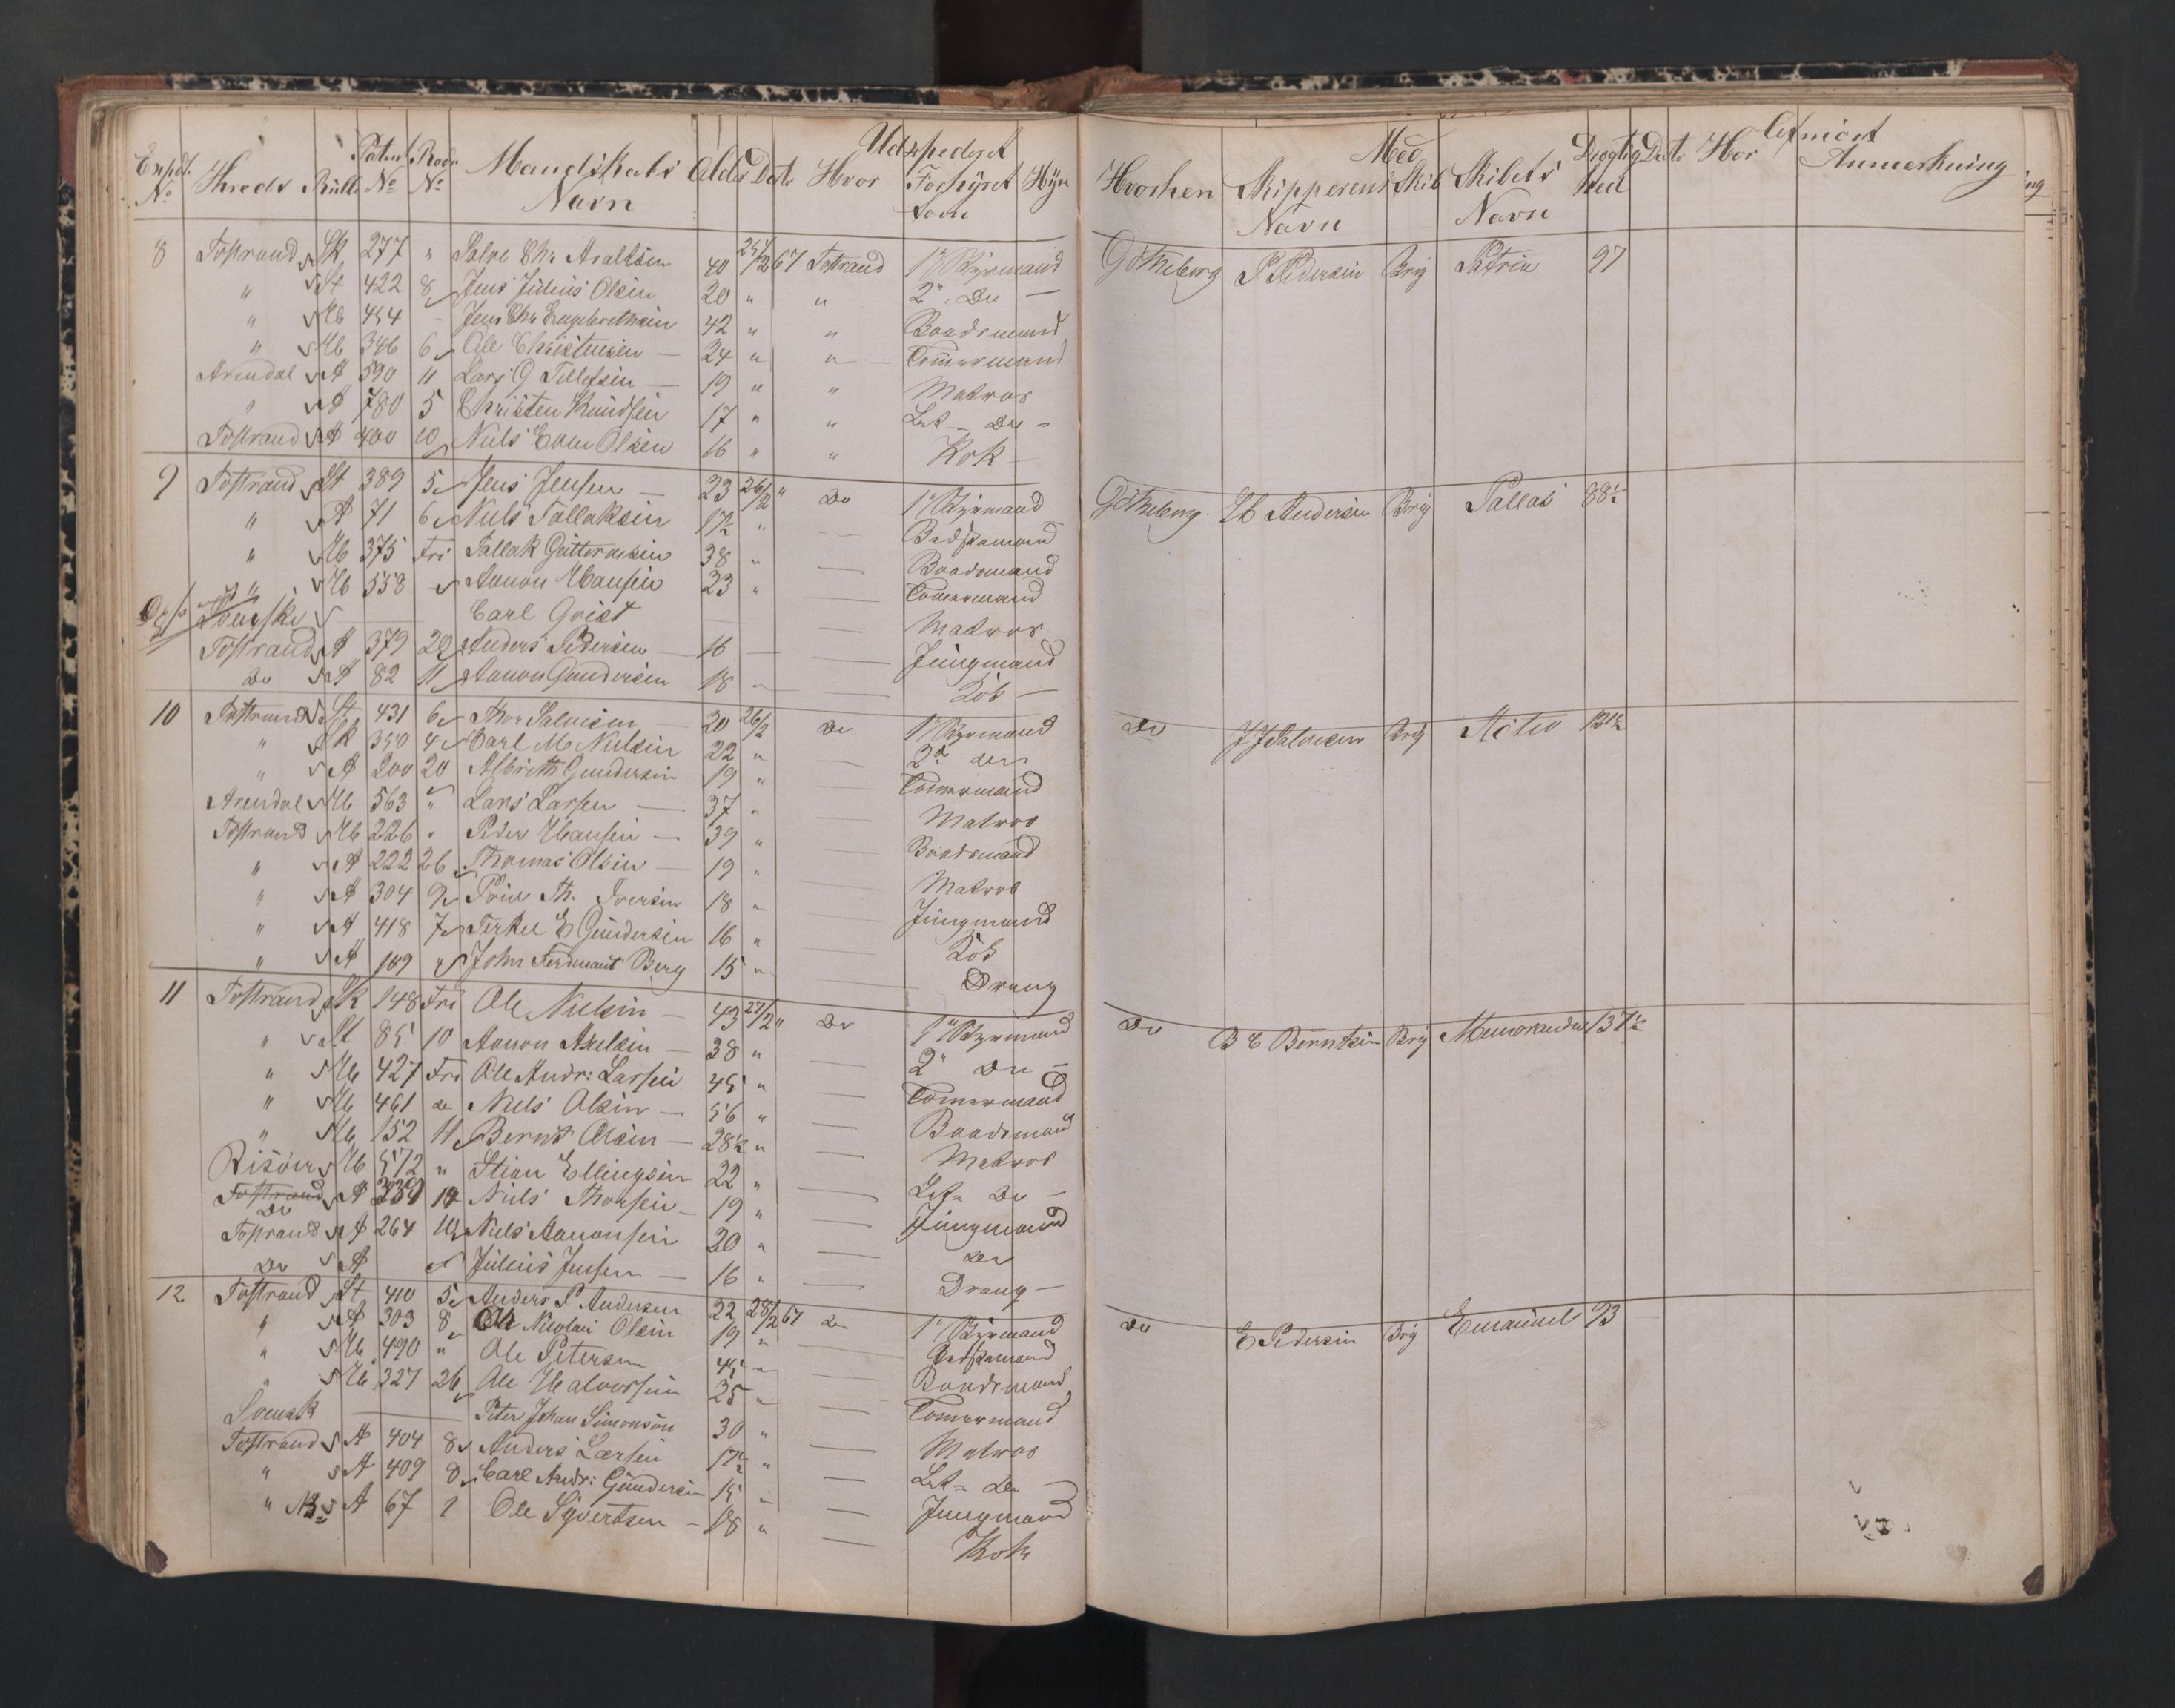 Udexpederet Med Afmönst
Expd. No Kreds Rulle Patent No Rode No Mandskabs Navn Alder Dato Hvor Forhyret som Hyre Hvorhen Skipperens Navn Skib Skibets Navn Drægtighed Dato Hvor Anmerkning
8 Tostrand Sk 277 " Salve Chr 40 25/2 67 Tostrand 1ste Styrmand Götheborg P Pedersen Brig Patria 97
" St 422 8 Jens Julius Olsen 20 " " 2n Do —
" Hb 454 - Jens Chr Engebrethsen 42 " " Baadsmand
" Hb 346 6 Ole Christensen — 24 " " Tömmermand
Arendal A 590 11 Lars G Tellefsen — 19 " " Matros
" A 780 5 Christen Knudsen 17 " " Let - Do -
Tostrand A 400 10 Niels Olsen 16 " " Kok —
9 Tostrand St 389 5 Jens Jensen — 23 26/2 " Do 1ste Styrmand Götheborg H Andersen Brig Pallas 88½
" A 71 6 Niels Tallaksen 17½ " — Bestemand
" Hb 375 Fri Tallak Guttormsen 38 " — Baadsmand
" Hb 558 Aanon Hansen 23 " — Tömmermand
Svenske Carl Qvist — Matros
Tostrand A 379 28 Anders Pedersen 16 — — Jungmand
Do A 82 11 Aanon Gundersen 18 " — Kok —
10 Tostrand St 431 6 Thor Salvesen 20 26/2 Do 1ste Styrmand Do J J Salvesen Brig Activ 131½
" Sk 350 4 Carl M Nielsen 22 " — 2d do
" A 200 20 Albreth Gundersen 19 " — Tömmermand
Arendal Hb 563 " Lars Larsen — 37 " — Matros
Tostrand Hb 226 " Peder Hansen — 39 " — Baadsmand
" A 222 26 Thomas Olsen — 19 " — Matros
" A 304 9 Th. Iversen 18 " — Jungmand
" A 418 7 Terkel E Gundersen 16 " — Kok
" A 109 John Ferdinant Berg 15 " — Dreng
11 Tostrand Sk 148 Fri Ole Nielsen — 43 27/2 " Do 1ste Styrmand Do B C Berntsen Brig Memorandum 137½
" St 85 10 Aanon Axelsen — 38 " — 2n Do —
" Hb 427 Fri Ole Andr: Larsen 45 " — Tömmermand
" Hb 461 do Niels Olsen — 56 " — Baadsmand
" Hb 152 11 Bernt Olsen — 28½ " — Matros
Risöer Hb 572 " Stian Ellingsen 22 " — Let- Do —
Tostrand Do A 19 Niels Thorsen — 19 " — Jungmand
Tostrand A 264 10 Niels Aanonsen 20 " — do
Do A Julius Jensen — 16 " — Dreng —
12 Tostrand St 410 5 Anders P Andersen 22 28/2 67 do 1ste Styrmand Do E Pedersen Brig Emanuel 93 —
" A 303 8 Ole Nicolai Olsen 19 " — Bestemand
" Hb 490 " Ole Petersen 45 " — Baadsmand
" Hb 227 26 Ole Halvorsen 25 " — Tömmermand
Svensk — Peter Johan Simonsön 30 " — Matros
Tostrand A 404 8 Anders Larsen 17½ " — Let- do —
" A 409 8 Carl Andr: Gundersen 15 " — Jungmand
" A 67 1 Ole Syvertsen — 18 " — Kok